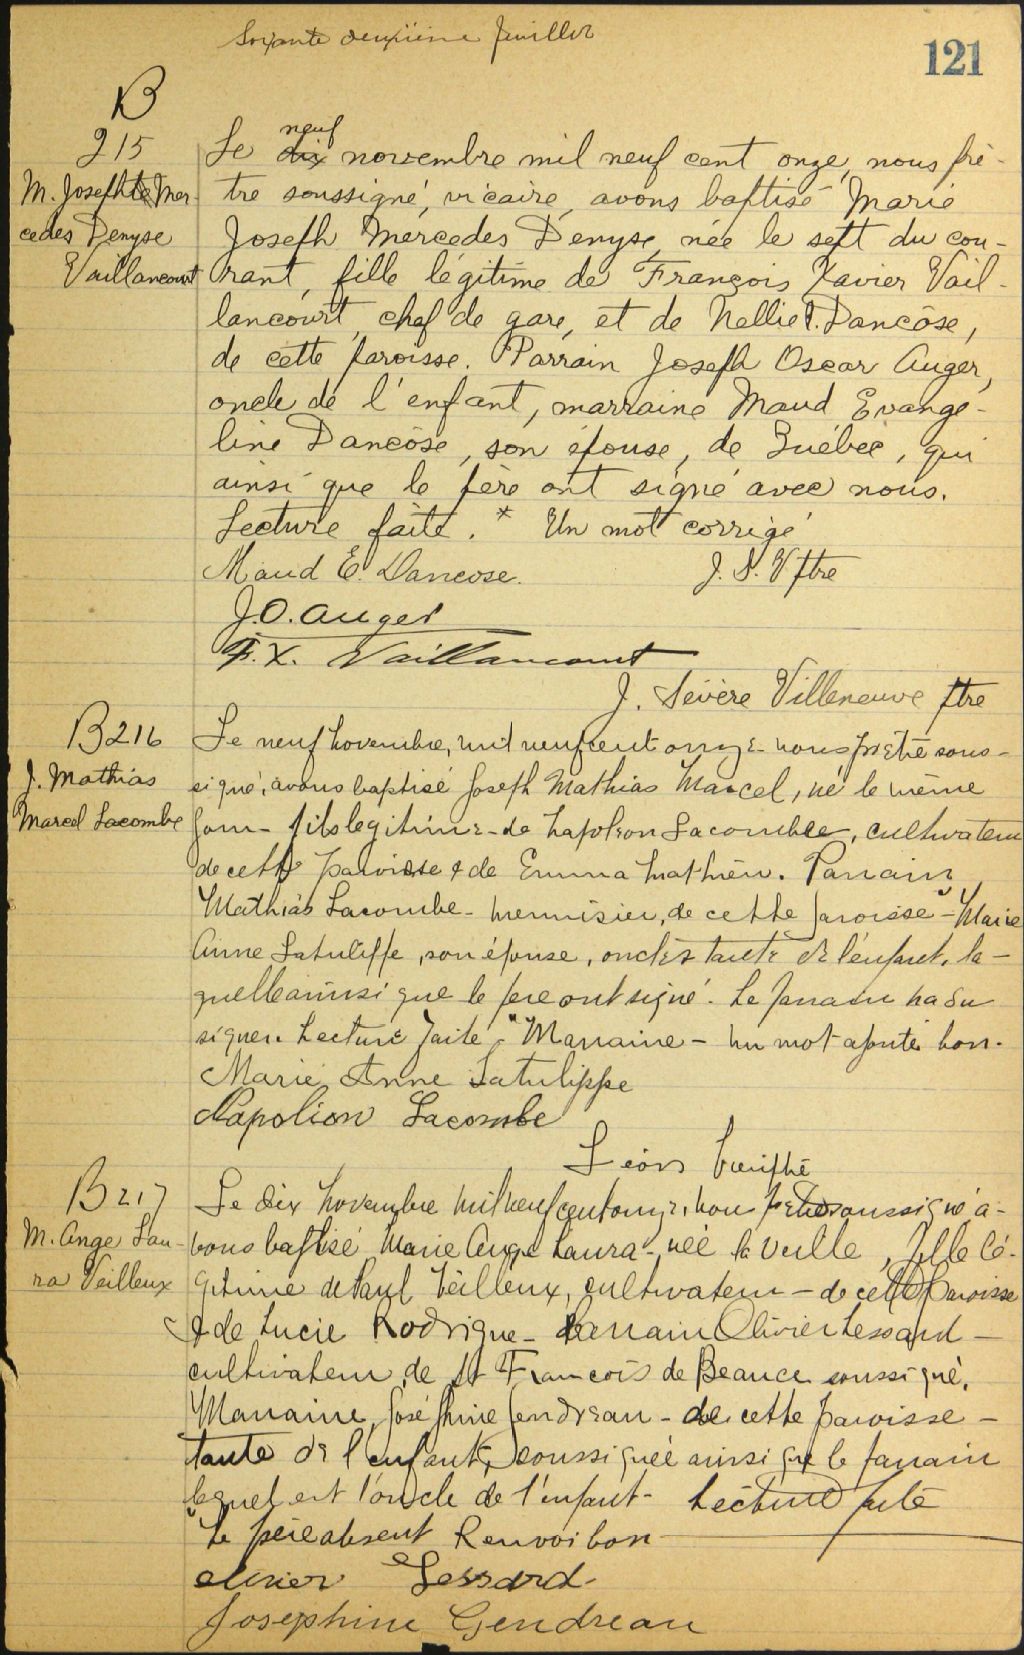 Soixante deuxième feuillet
121
B
215
M. Josephte Mer-
cedes Denyse
Vaillancourt
Le dix neuf novembre mil neuf cent onze, nous prê-
tre soussigné, vicaire, avons baptisé Marie
Joseph Mercedes Denyse, née le sept du cou-
rant, fille légitime de François Xavier Vail-
lancourt, chef de gare, et de Nellie T. Dancôse,
de cette paroisse. Parrain Joseph Oscar Auger,
oncle de l'enfant, marraine Maud Evange-
line Dancôse, son épouse, de Québec, qui
ainsi que le père ont signé avec nous.
Lecture faite. * Un mot corrigé
Maud E. Dancose. J. S. V ptre
J. O. Auger
F. X. Vaillancourt
J. Sévère Villeneuve ptre
B 216
J. Mathias
Marcel Lacombe
Le neuf novembre, mil neuf cent onze nous prêtre sous-
signé, avons baptisé Joseph Mathias Marcel, né le même
jour - fils legitime - de Napoleon Lacombe, cultivateur
de cette paroisse & de Emma Mathieu. Parrain
Mathias Lacombe - menuisier, de cette paroisse " - Marie
Anne Latulippe, son épouse, oncle & tante de l'enfant, la -
quelle ainsi que le pere ont signé. Le parrain n'a su
signer. Lecture faite " Marraine - un mot ajouté bon.
Marie Anne Latulippe
Napolion Lacombe
Léon
B 217
M. Ange Lau-
ra Veilleux
Le dix novembre mil neuf cent onze, nous prêtre soussigné, a-
vons baptisé Marie Ange Laura - née la veille, fille lé-
gitime de Paul Veilleux, cultivateur - de cette paroisse
& de Lucie Rodrigue - Parrain Olivier Lessard -
cultivateur, de St François de Beauce soussigné,
Marraine, Joséphine Gendreau - de cette paroisse -
tante de l'enfant, soussignée ainsi que le parrain
lequel est l'oncle de l'enfant - Lecture faite
"Le père absent Renvoi bon -
olivier Lessard
Josephine Gendreau